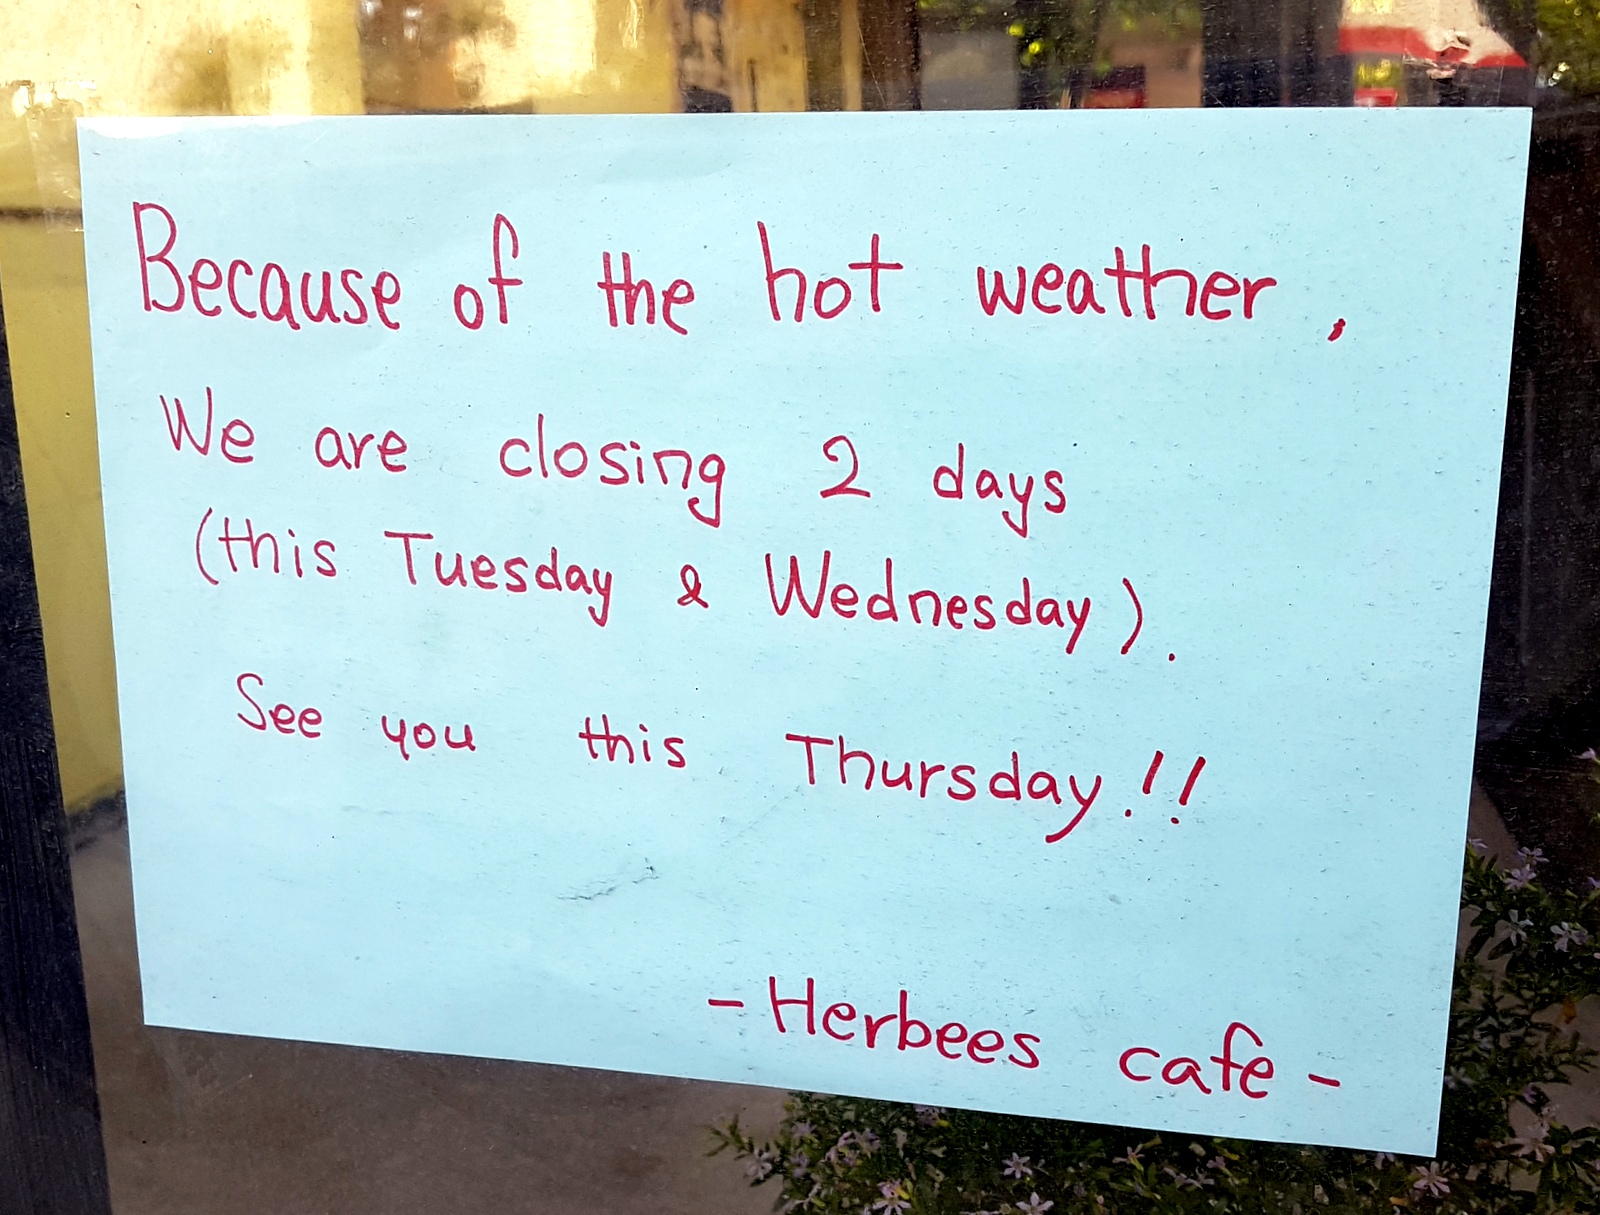 Because of the hot weather,
We are closing 2 days
(this Tuesday & Wednesday).
See you this Thursday!!
- Herbees cafe -